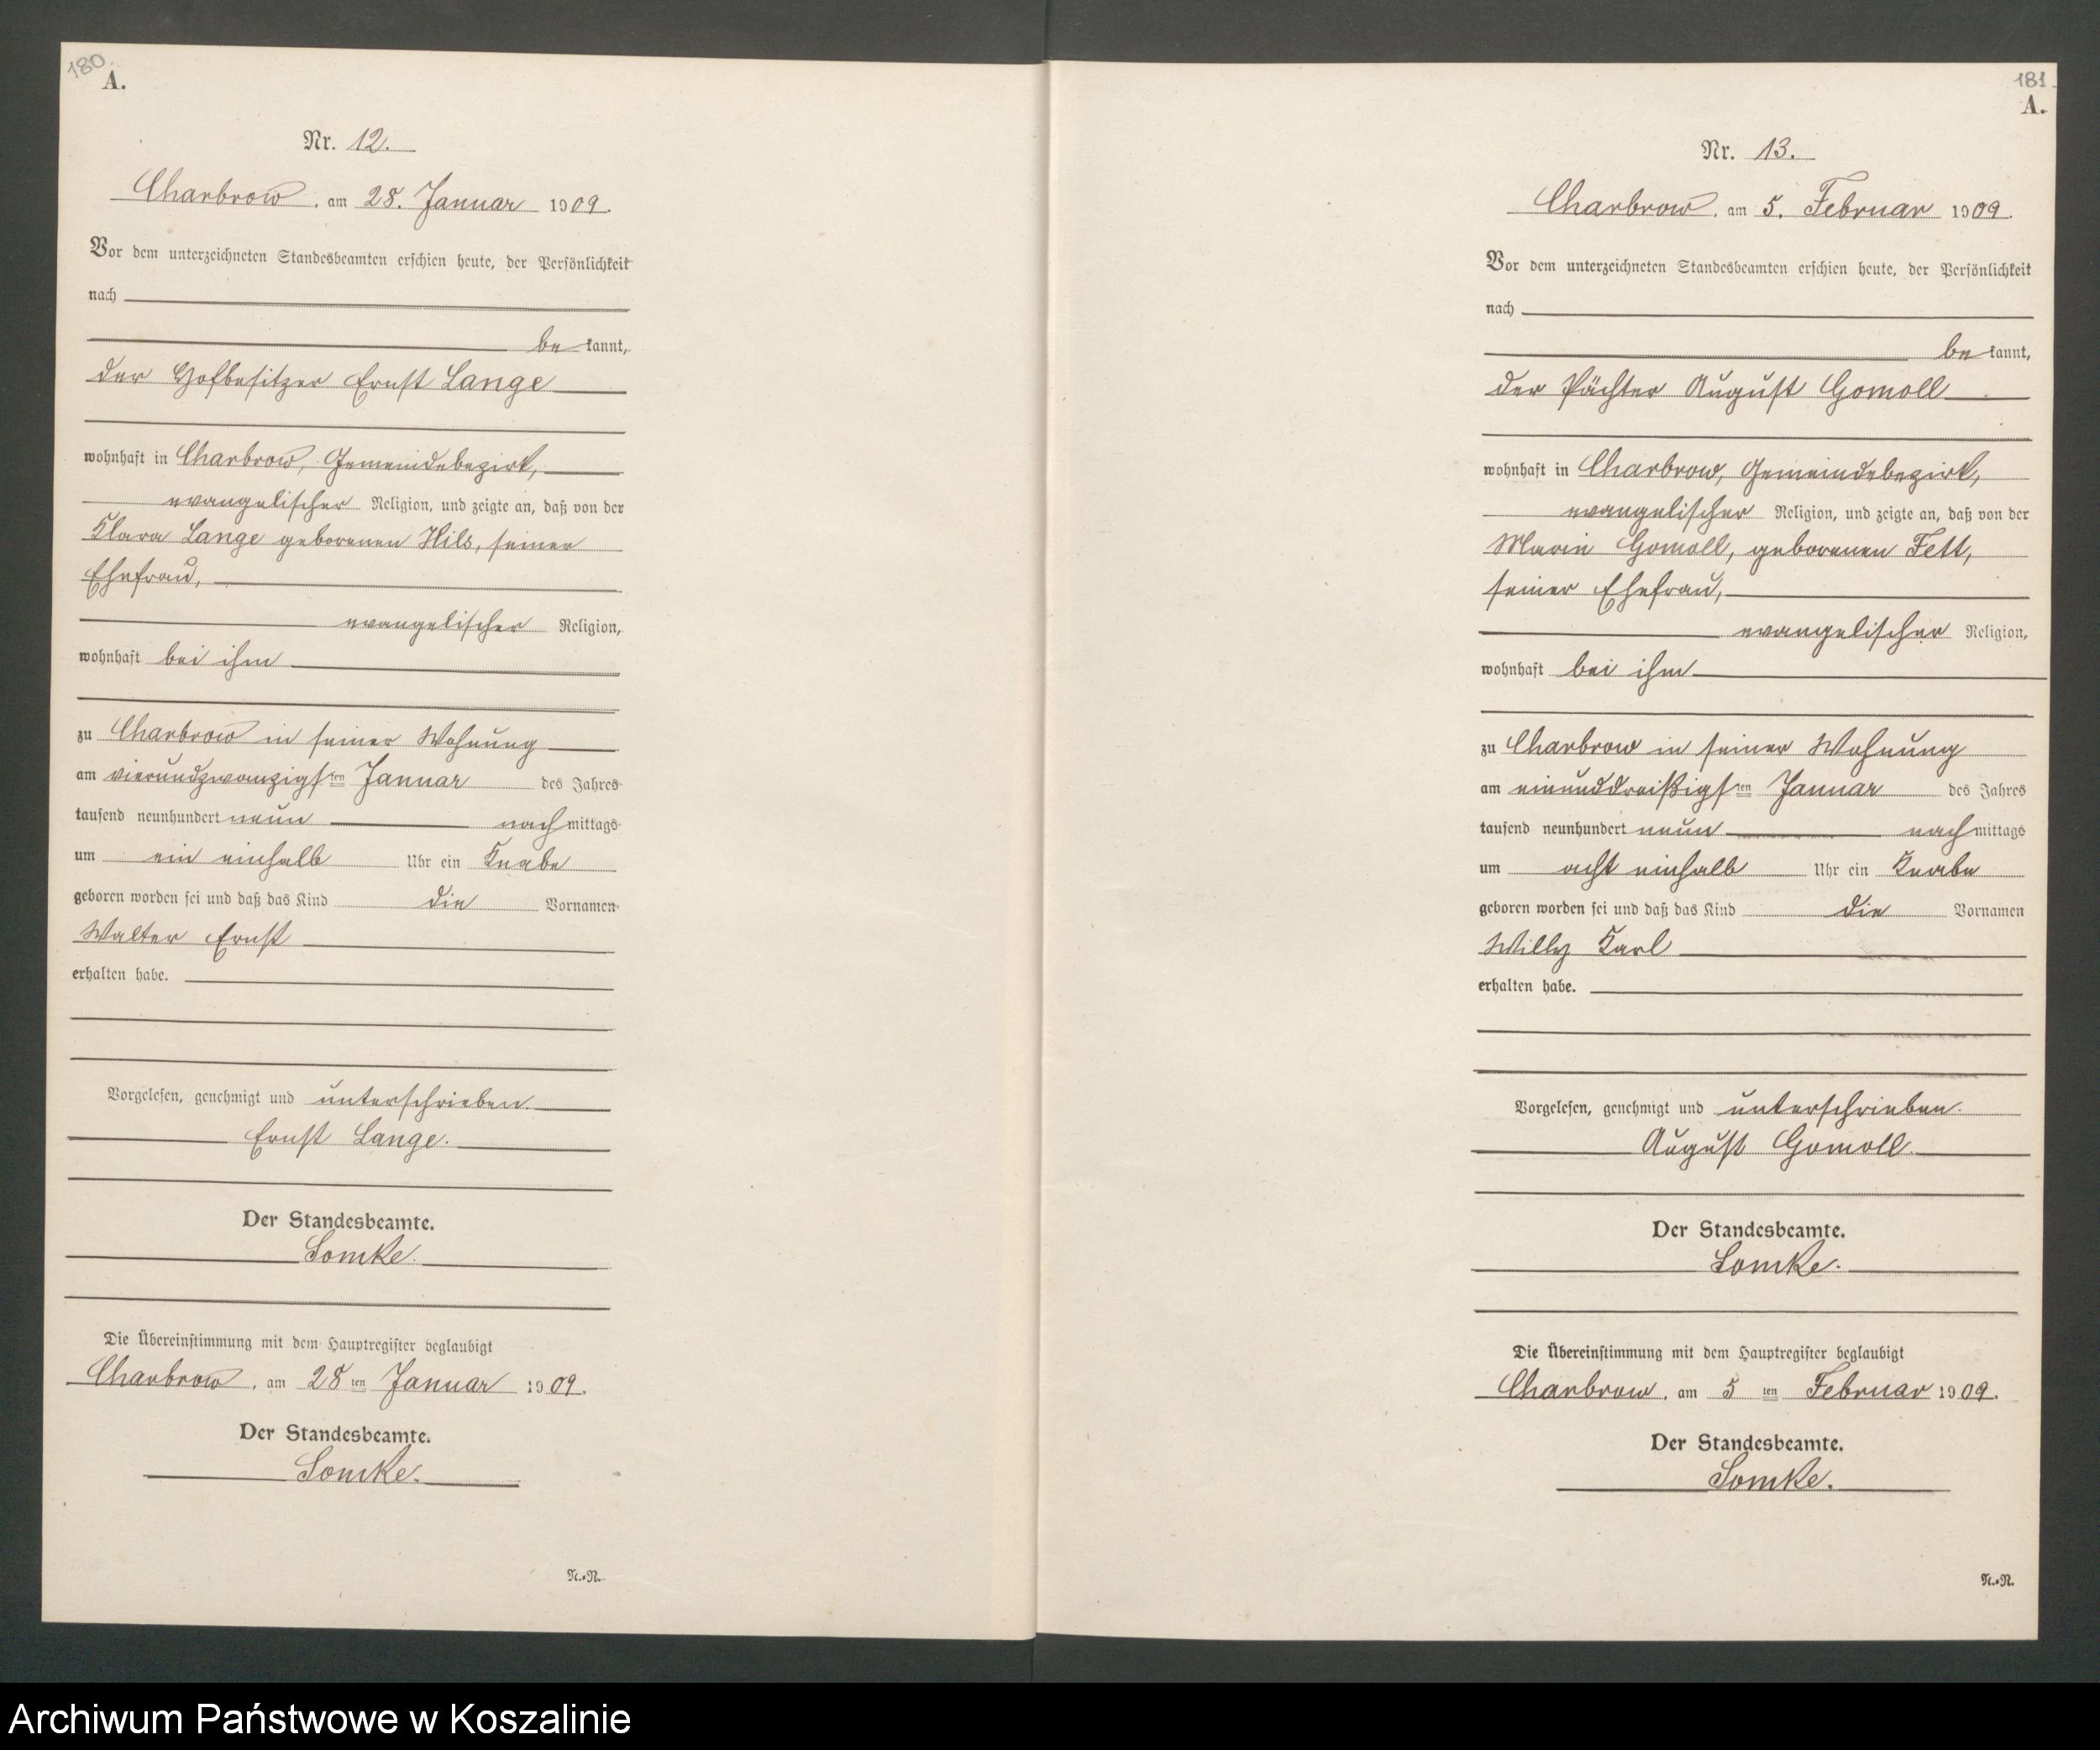 180.
A.
Nr. 12.
Charbrow, am 28. Januar 1909.
Vor dem unterzeichneten Standesbeamten erschien heute, der Persönlichkeit
nach
bekannt,
der Hofbesitzer Ernst Lange
wohnhaft in Charbrow, Gemeindebezirk,
evangelischer Religion, und zeigte an, daß von der
Klara Lange geborenen Hils, seiner
Ehefrau,
evangelischer Religion,
wohnhaft bei ihm
zu Charbrow in seiner Wohnung
am vierundzwanzigsten Januar des Jahres
tausend neunhundert neun nachmittags
um ein einhalb Uhr ein Knabe
geboren worden sei und daß das Kind die Vornamen
Walter Ernst
erhalten habe.
Vorgelesen, genehmigt und unterschrieben.
Ernst Lange.
Der Standesbeamte.
Somke.
Die Übereinstimmung mit dem Hauptregister beglaubigt
Charbrow, am 28ten Januar 1909.
Der Standesbeamte.
Somke.
N.-R.
181.
A.
Nr. 13.
Charbrow, am 5. Februar 1909.
Vor dem unterzeichneten Standesbeamten erschien heute, der Persönlichkeit
nach
bekannt,
der Pächter August Gomoll
wohnhaft in Charbrow, Gemeindebezirk,
evangelischer Religion, und zeigte an, daß von der
Marie Gomoll, geborenen Fett,
seiner Ehefrau,
evangelischer Religion,
wohnhaft bei ihm
zu Charbrow in seiner Wohnung
am einunddreißigsten Januar des Jahres
tausend neunhundert neun nachmittags
um acht einhalb Uhr ein Knabe
geboren worden sei und daß das Kind die Vornamen
Willy Karl
erhalten habe.
Vorgelesen, genehmigt und unterschrieben.
August Gomoll.
Der Standesbeamte.
Somke.
Die Übereinstimmung mit dem Hauptregister beglaubigt
Charbrow, am 5ten Februar 1909.
Der Standesbeamte.
Somke.
N.-R.
Archiwum Państwowe w Koszalinie